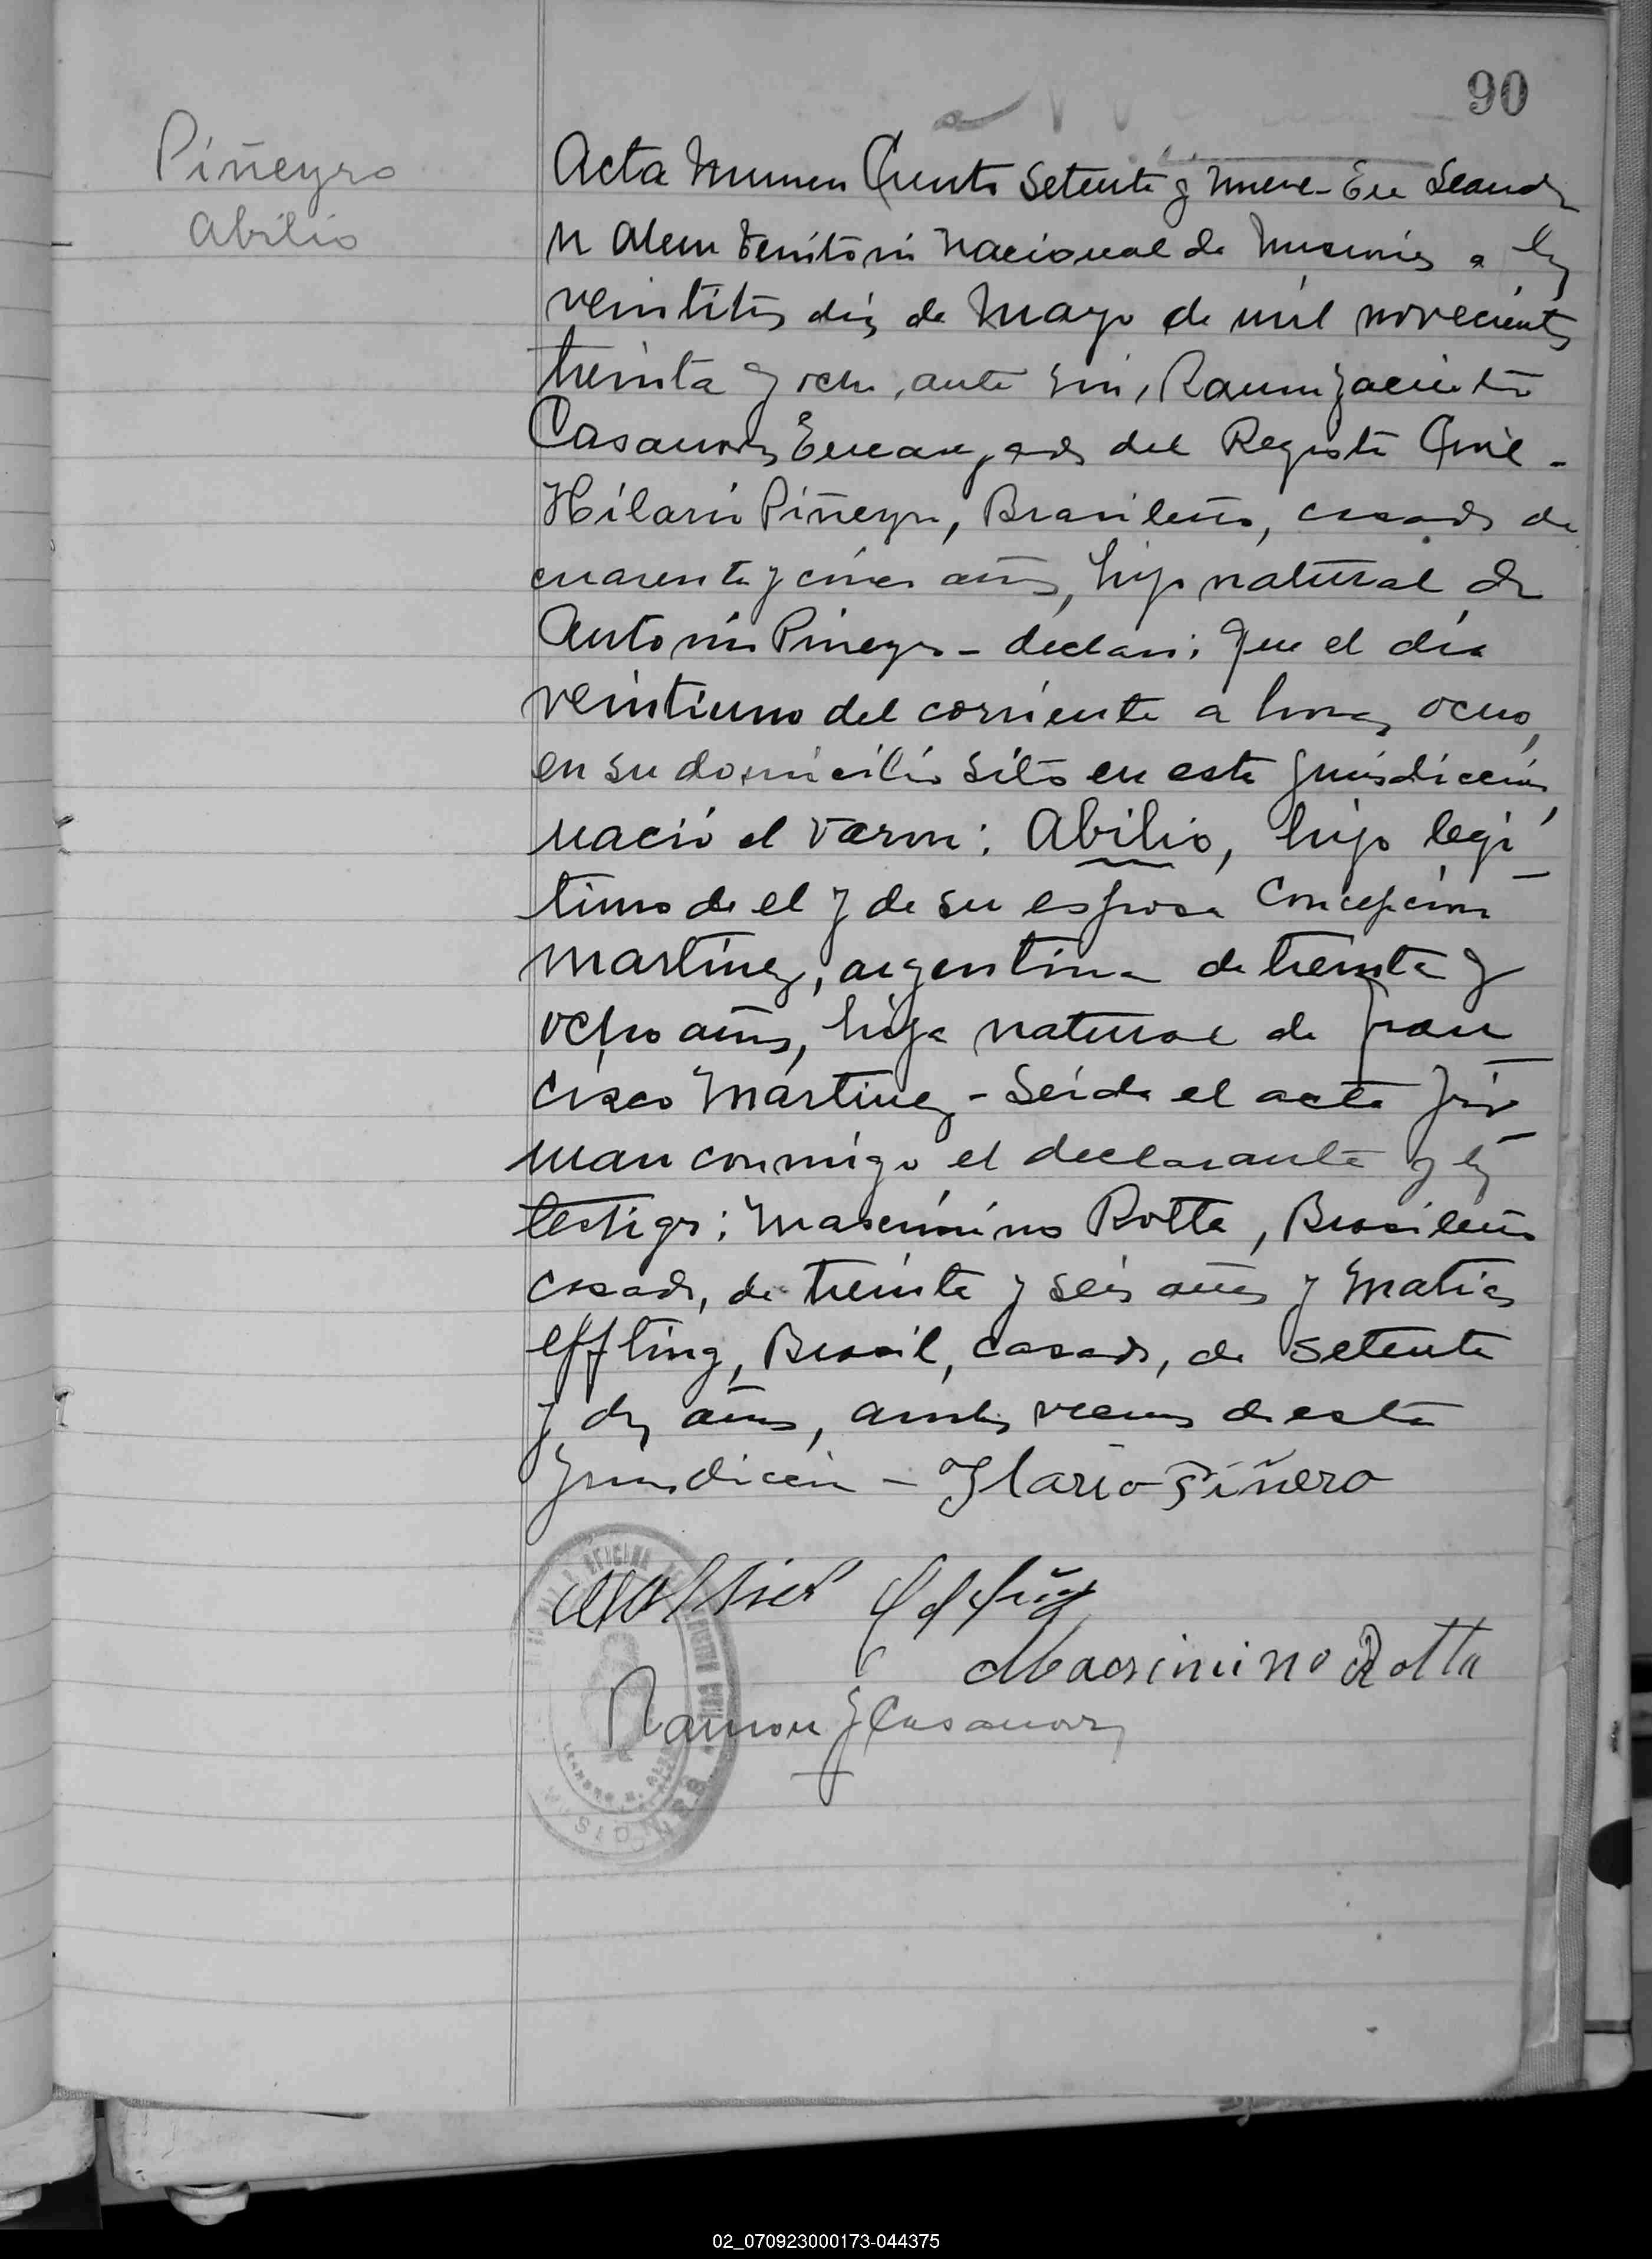 90
Piñeyro
Abilio
Acta Numero Ciento Setenta y nueve - En Leandro
N Alem Territorio Nacional de Misiones a los
veintitres dias de Mayo de mil novecientos
treinta y ocho, ante mi, Ramon Jacinto
Casanova Encargado del Registro Civil -
Hilario Piñeyro, Brasileño, casado de
cuarenta y cinco años, hijo natural de
Antonio Pineyro - declaro: Que el dia
veintiuno del corriente a horas ocho,
en su domicilio sito en esta jurisdiccion
nació el varon: Abilio, hijo legi
timo de el y de su esposa Concepcion
Martinez, argentina de treinta y
ocho años, hija natural de Fran
cisco Martinez - Leida el acta fir
man conmigo el declarante y los
testigos: Maximino Rotta, Brasileño
casado, de treinta y seis años y Matias
Effting, Brasil, casado, de setenta
y dos años, ambos vecinos de esta
jurisdiccion - Ilario Piñero
Effting
Macsimino Rotta
Ramon J Casanova
MISIONES
02_070923000173-044375